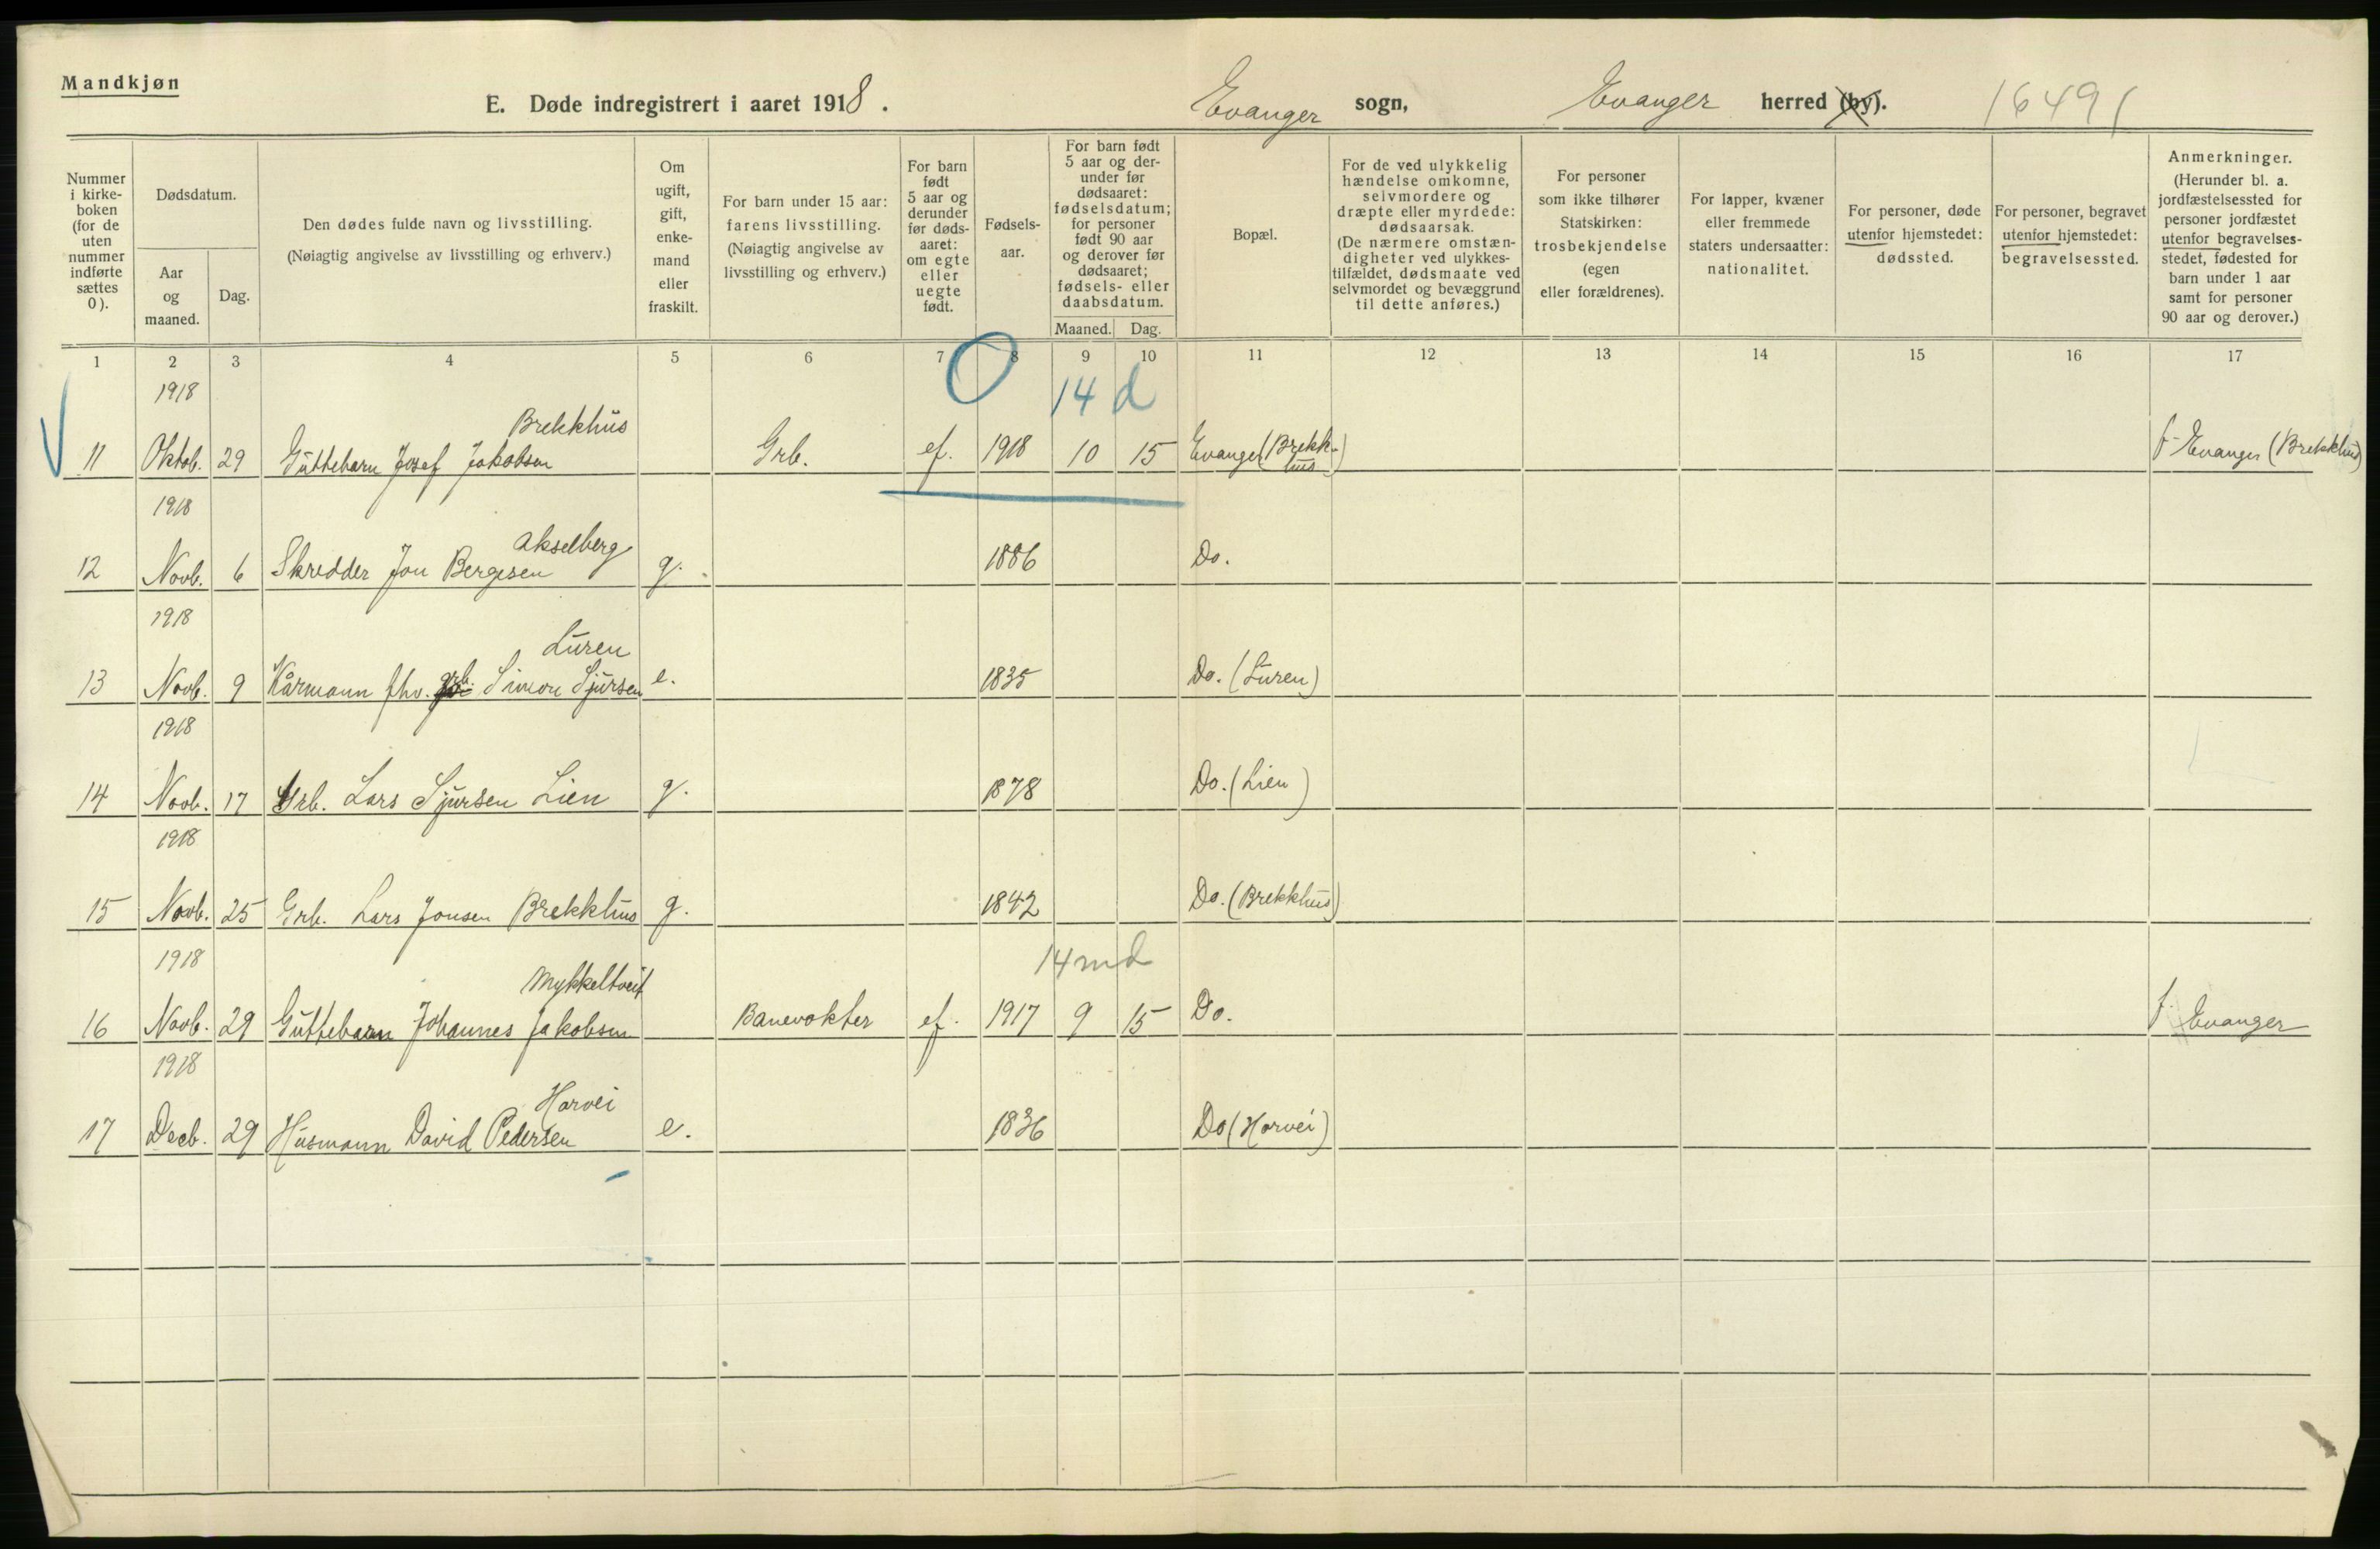 Mandkjøn
E. Døde indregistrert i aaret 1918. Evanger sogn, Evanger herred (by). 16491
Nummer i kirke-boken (for de uten nummer indførte sættes 0).
Dødsdatum.
Aar og maaned.
Dag.
Den dødes fulde navn og livsstilling.
(Nøiagtig angivelse av livsstilling og erhverv.)
Om ugift, gift, enke-mand eller fraskilt.
For barn under 15 aar: farens livsstilling. (Nøiagtig angivelse av livsstilling og erhverv.)
For barn født 5 aar og derunder før døds-aaret: om egte eller uegte født.
Fødsels-aar.
For barn født 5 aar og der-under før dødsaaret: fødselsdatum; for personer født 90 aar og derover før dødsaaret; fødsels- eller daabsdatum.
Maaned. Dag.
Bopæl.
For de ved ulykkelig hændelse omkomne, selvmordere og dræpte eller myrdede: dødsaarsak. (De nærmere omstæn-digheter ved ulykkes-tilfældet, dødsmaate ved selvmordet og bevæggrund til dette anføres.)
For personer som ikke tilhører Statskirken: trosbekjendelse (egen eller forældrenes).
For lapper, kvæner eller fremmede staters undersaatter: nationalitet.
For personer, døde utenfor hjemstedet: dødssted.
For personer, begravet utenfor hjemstedet: begravelsessted.
Anmerkninger. (Herunder bl. a. jordfæstelsessted for personer jordfæstet utenfor begravelses-stedet, fødested for barn under 1 aar samt for personer 90 aar og derover.)
1 2 3 4 5 6 7 8 9 10 11 12 13 14 15 16 17
1918 0 14 d
Brekkhus
11 Oktob. 29 Guttebarn Josef Jakobsen Grb. ef. 1918 10 15 Evanger (Brekk-hus) f. Evanger (Brekkhus)
1918
Akselberg
12 Novb. 6 Skredder Jon Bergesen g. 1886 Do.
1918
Luren
13 Novb. 9 Kårmann fhv. grb. Simon Sjursen e. 1835 Do. (Luren)
1918
14 Novb. 17 Grb. Lars Sjursen Lien g. 1878 Do. (Lien)
1918
15 Novb. 25 Grb. Lars Jonsen Brekkhus g. 1842 Do. (Brekkhus)
1918 14 md
Mykkeltveit
16 Novb. 29 Guttebarn Johannes Jakobsen Banevokter ef. 1917 9 15 Do. f. Evanger
1918
Horvei
17 Decb. 29 Husmann David Pedersen e. 1836 Do (Horvei)